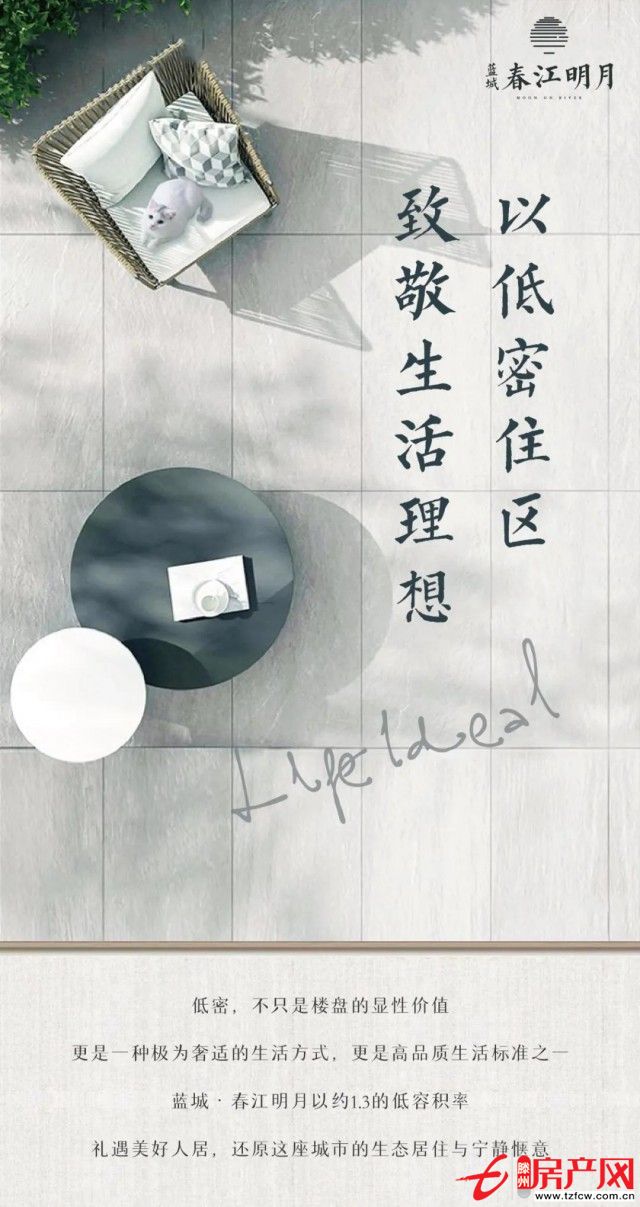 蓝城
春江明月
MOON ON RIVER
以低密住区
致敬生活理想
Life Ideal
低密，不只是楼盘的显性价值
更是一种极为奢适的生活方式，更是高品质生活标准之一
蓝城·春江明月以约1.3的低容积率
礼遇美好人居，还原这座城市的生态居住与宁静惬意
滕州
房产网
www.tzfcw.com.cn